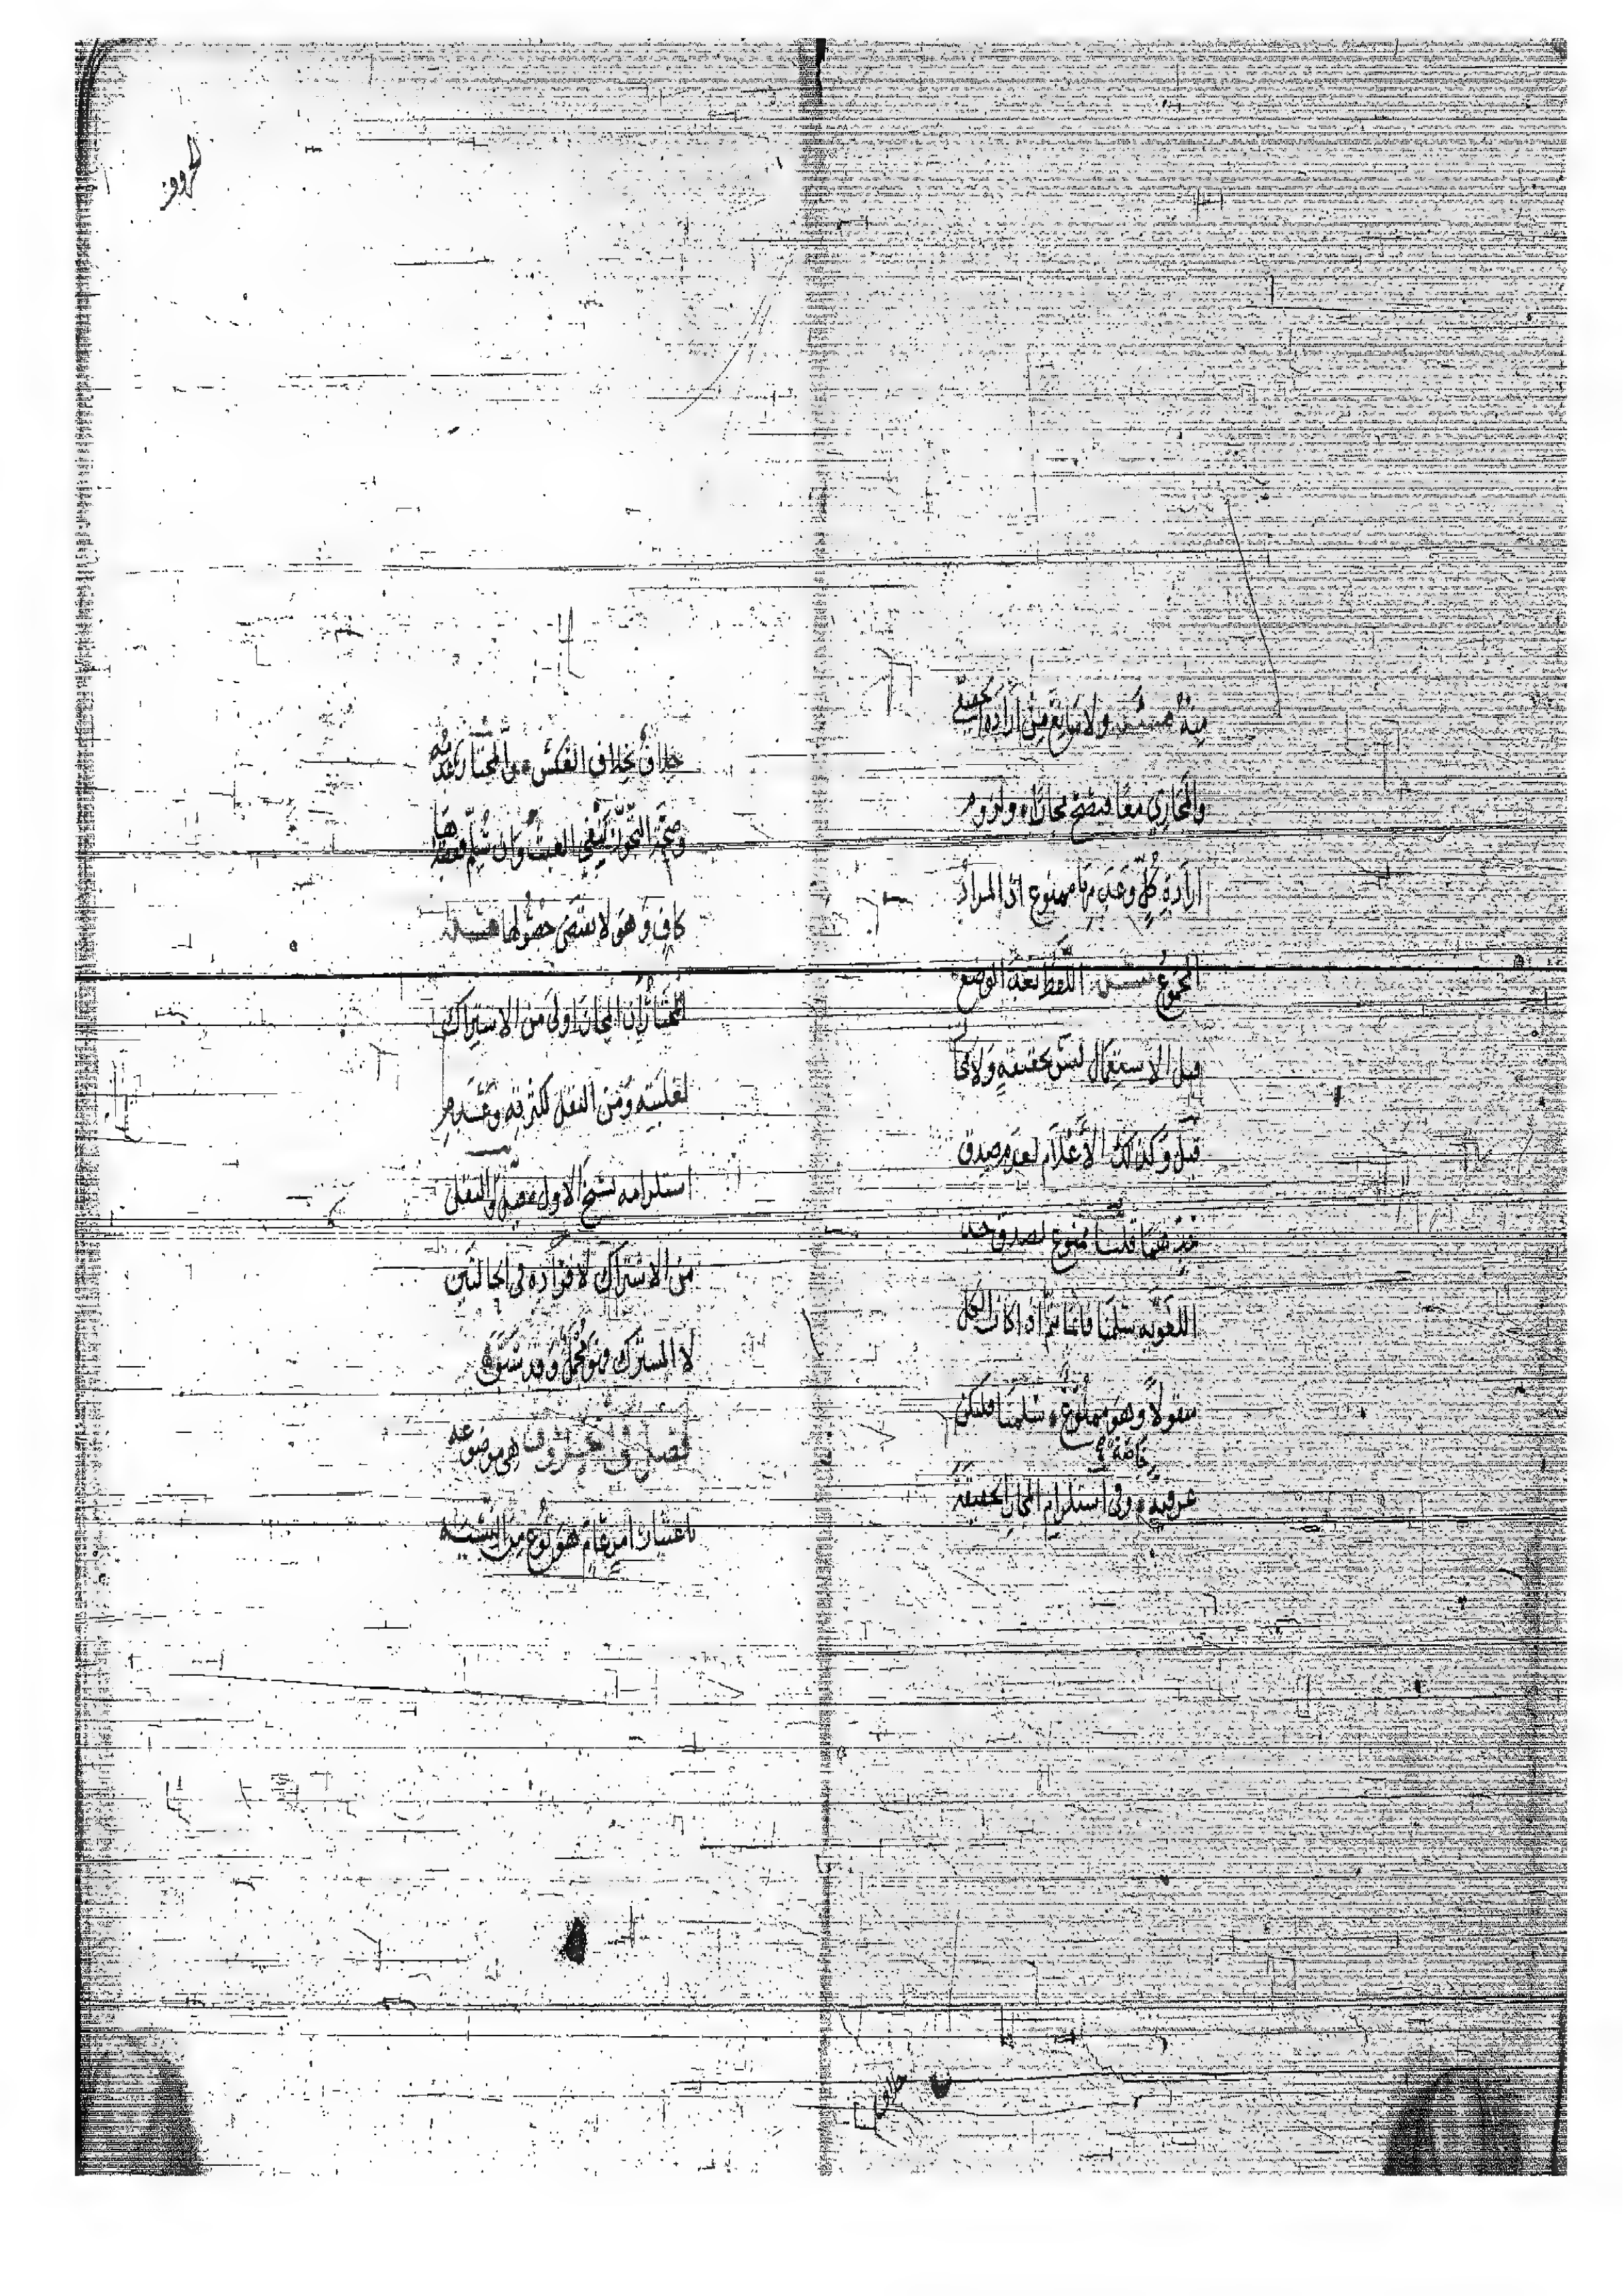 منهُ مسئلة ولا مانع من ارادة الحقيقي
والمجازي معًا فيصح مجازًا ولزوم
ارادة كلٍّ وعدمها ممنوع اذ المراد
المجموعُ مسئلة اللفظ بعد الوضع
قبل الاستعمال ليس بحقيقةٍ ولا مجاز
قيل وكذلك الأعلام لعدم صدق
حديهما قلنا ممنوع لصدق حد
اللغوية سلمنا فانما يتم اذا كان الكل
منقولًا وهو ممنوع سلمنا فلتكن
عرفية خاصة وفي استلزام المجاز الحقيقة
خلاف
خلافٌ بخلاف العكس والمختار عدمه
وصحة التجوز ينفي العبث وان سلم فقصدها
كافٍ وهو لا يقتضي حصولها مسئلة
المختار ان المجاز اولى من الاشتراك
لغلبته ومن النقل لكثرته وعدم
استلزامه نسخ الاول والنقل
من الاشتراك لافراده في الحالتين
لا المشترك فهو مجمل وقد سبق
فصل في الحروف هي موضوعه
باعتبار امرٍ عام هو نوع من النسبة